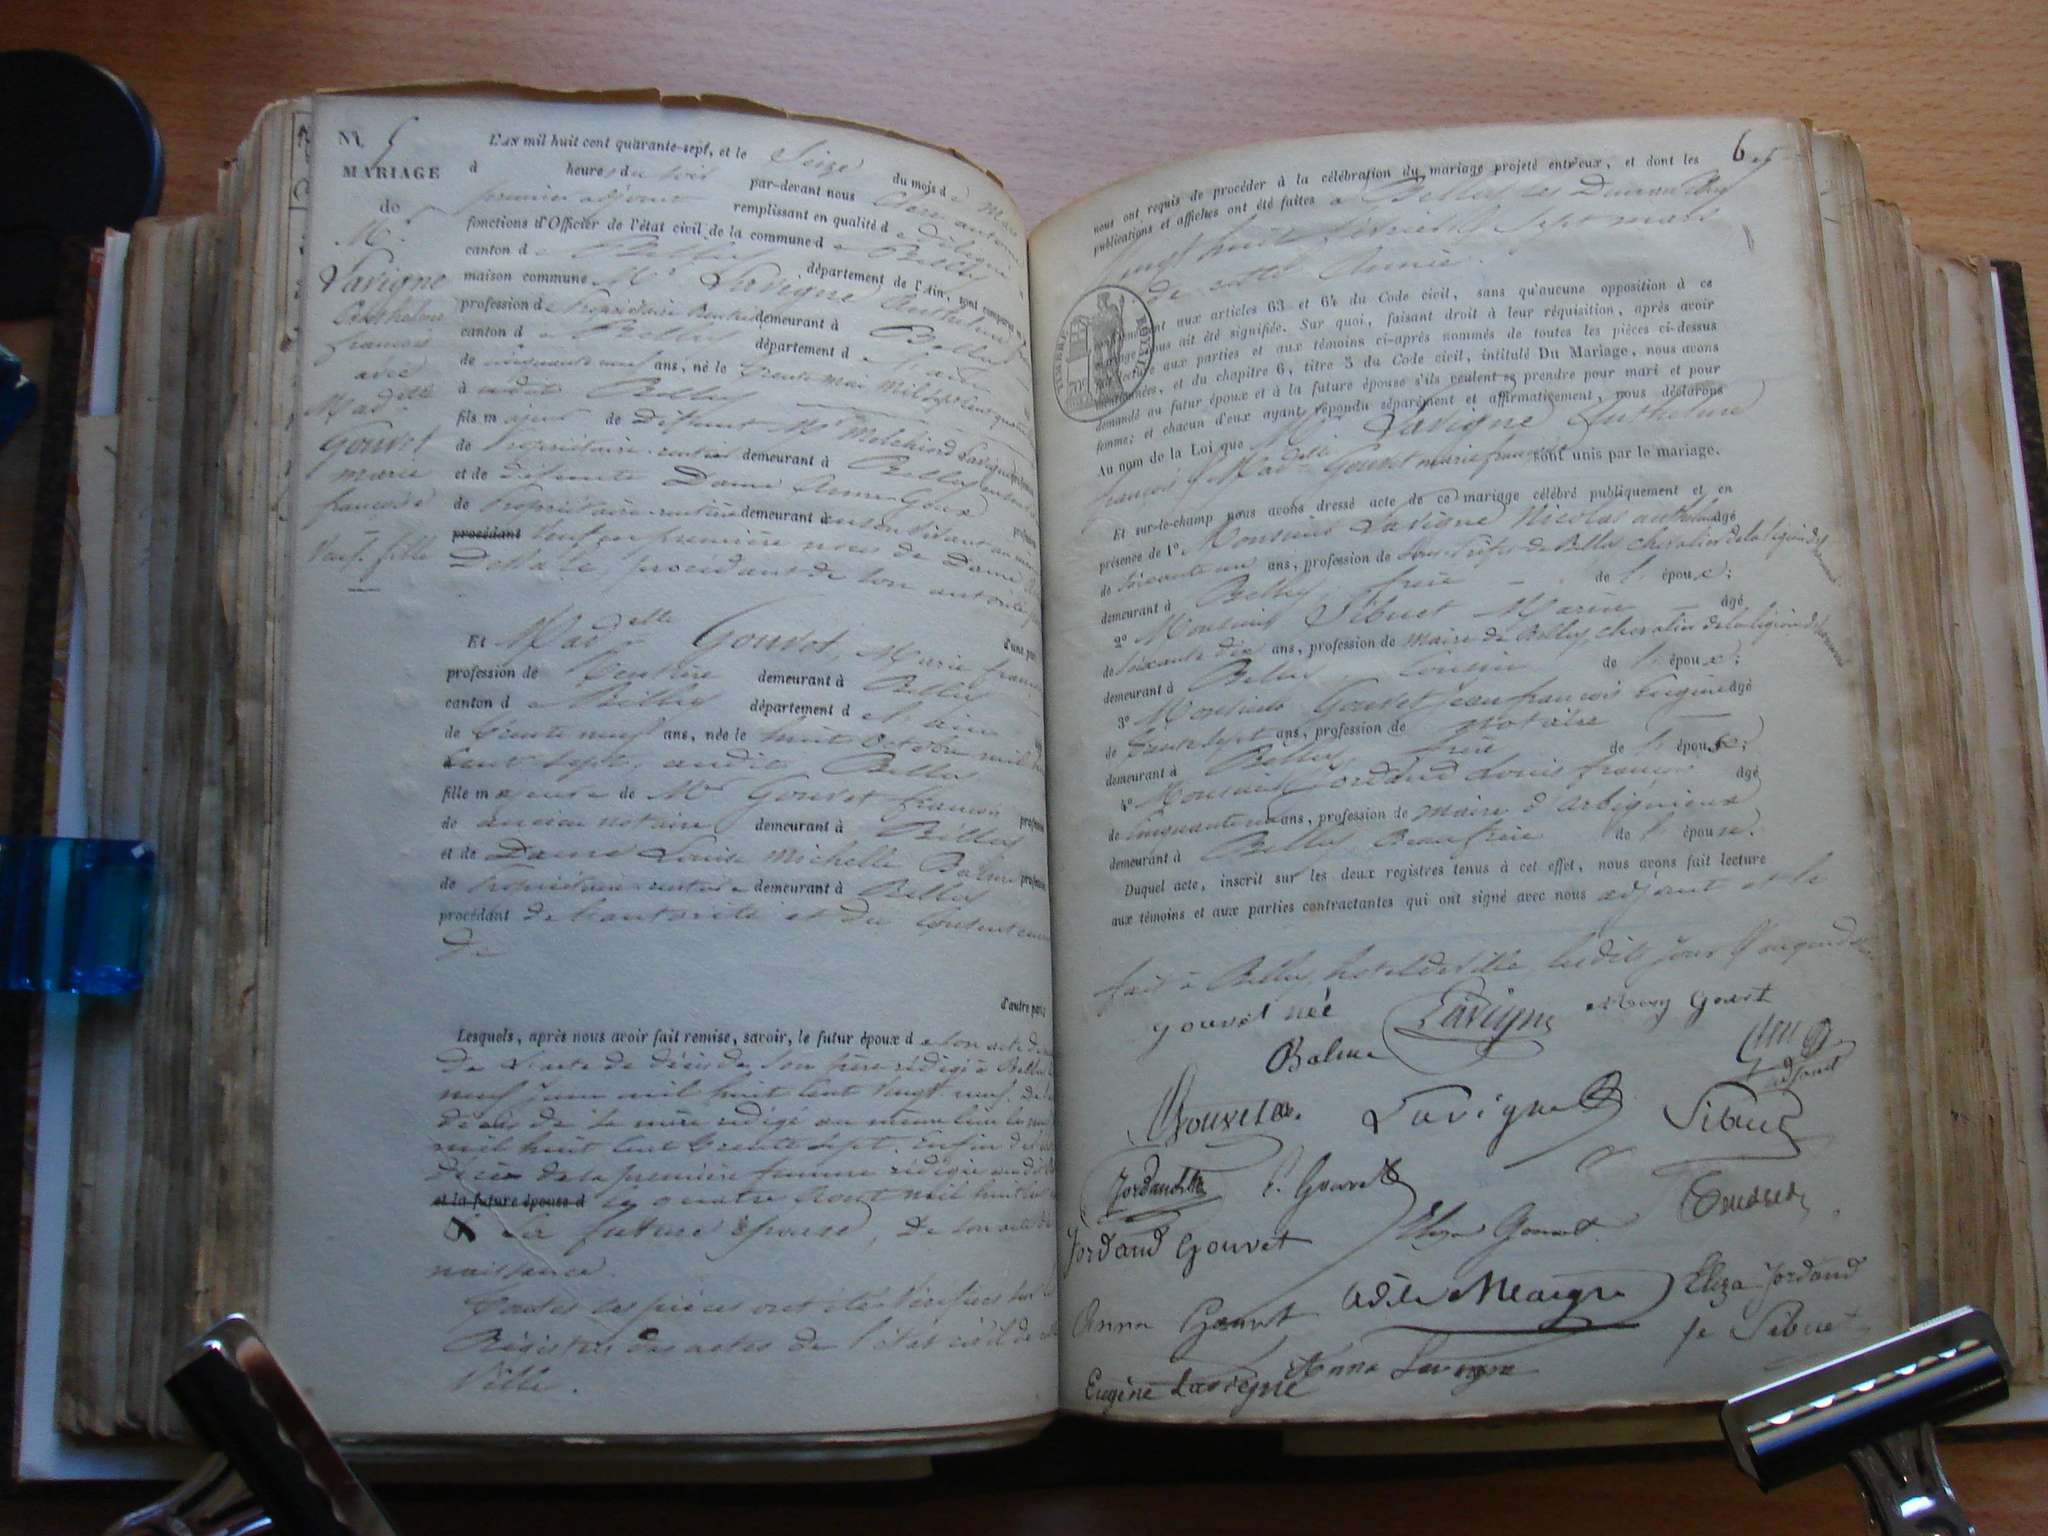 N. 5
MARIAGE
de
Mr
Lavigne
Anthelme
françois
avec
Madelle
Gouvet
marie
françoise
veuf. fille
L'an mil huit cent quarante-sept, et le Seize du mois de Mars
d heures du soir par-devant nous
premier adjoint remplissant en qualité de délégué
fonctions d'Officier de l'état civil de la commune de Belley
canton de Belley département de l'Ain, sont comparus
maison commune Mr Lavigne Anthelme
profession de Propriétaire Rentier demeurant à Belley
canton de Belley département de l'ain
de cinquante neuf ans, né le trente mai mil sept cent quatre
à audit Belley
fils majeur de défunt Mr Melchiord Lavigne
de Propriétaire rentier demeurant à Belley
et de défunte Dame Anne Goux
de Propriétaire rentière demeurant à
procédant veuf en première noces de Dame
procédant de son autorité
d'une part
Et Madelle Gouvet, Marie
profession de Rentière demeurant à Belley
canton de Belley département de l'ain
de trente neuf ans, née le huit octobre mil
cent sept, audit Belley
fille majeure de Mr Gouvet françois
de ancien notaire demeurant à Belley
et de Dame Louise Michelle Balme
de Propriétaire rentière demeurant à Belley
procédant de l'autorité et du
de
d'autre part;
Lesquels, après nous avoir fait remise, savoir, le futur époux de son acte de
De l'acte de décès de son père rédigé à Belley
neuf juin mil huit cent vingt neuf. De
décès de sa mère rédigé au même lieu le
mil huit cent trente sept. Enfin de
décès de la première femme rédigé audit
et la future épouse d le quatre août mil huit
La future Épouse, de son acte de
naissance.
Toutes ces pièces ont été vérifiées sur
Régistres des actes de l'état civil de
Ville.
6
nous ont requis de procéder à la célébration du mariage projeté entr'eux, et dont les
publications et affiches ont été faites à Belley les Dimanches
vingt huit février et Sept mars
de cette Année.
TIMBRE ROYAL
aux articles 63 et 64 du Code civil, sans qu'aucune opposition à ce
mariage nous ait été signifiée. Sur quoi, faisant droit à leur réquisition, après avoir
lecture aux parties et aux témoins ci-après nommés de toutes les pièces ci-dessus
mentionnées, et du chapitre 6, titre 5 du Code civil, intitulé Du Mariage, nous avons
demandé au futur époux et à la future épouse s'ils veulent se prendre pour mari et pour
femme; et chacun d'eux ayant répondu séparément et affirmativement, nous déclarons
Au nom de la Loi que Mr Lavigne Anthelme
françois & Madelle Gouvet marie françoise sont unis par le mariage.
Et sur-le-champ nous avons dressé acte de ce mariage célébré publiquement et en
présence de 1º Monsieur Lavigne Nicolas anthelme âgé
de soixante un ans, profession de Sous Préfet de Belley chevalier de la légion d'honneur
demeurant à Belley, frère de l'époux;
2º Monsieur Sibuet Marin âgé
de soixante dix ans, profession de maire de Belley, chevalier de la légion d'honneur
demeurant à Belley, Cousin de l'époux;
3º Monsieur Gouvet jean françois Eugène âgé
de trente sept ans, profession de notaire
demeurant à Belley, frère de l'épouse;
4º Monsieur Jordand Louis françois âgé
de Cinquante un ans, profession de maire d'arbignieux
demeurant à Belley, Beau frère de l'épouse.
Duquel acte, inscrit sur les deux registres tenus à cet effet, nous avons fait lecture
aux témoins et aux parties contractantes qui ont signé avec nous adjoint et le
fait à Belley, hotel de Ville, lesdits jour
gouvet née Lavigne Mary Gouvet
Balme
adjoint
Gouvet Lavigne Sibuet
Jordand Gouvet
Jordand Gouvet Gouvet
Anna Gouvet Adèle Maigre Eliza Jordand
Sibuet
Eugène Lavigne Anna Lavigne